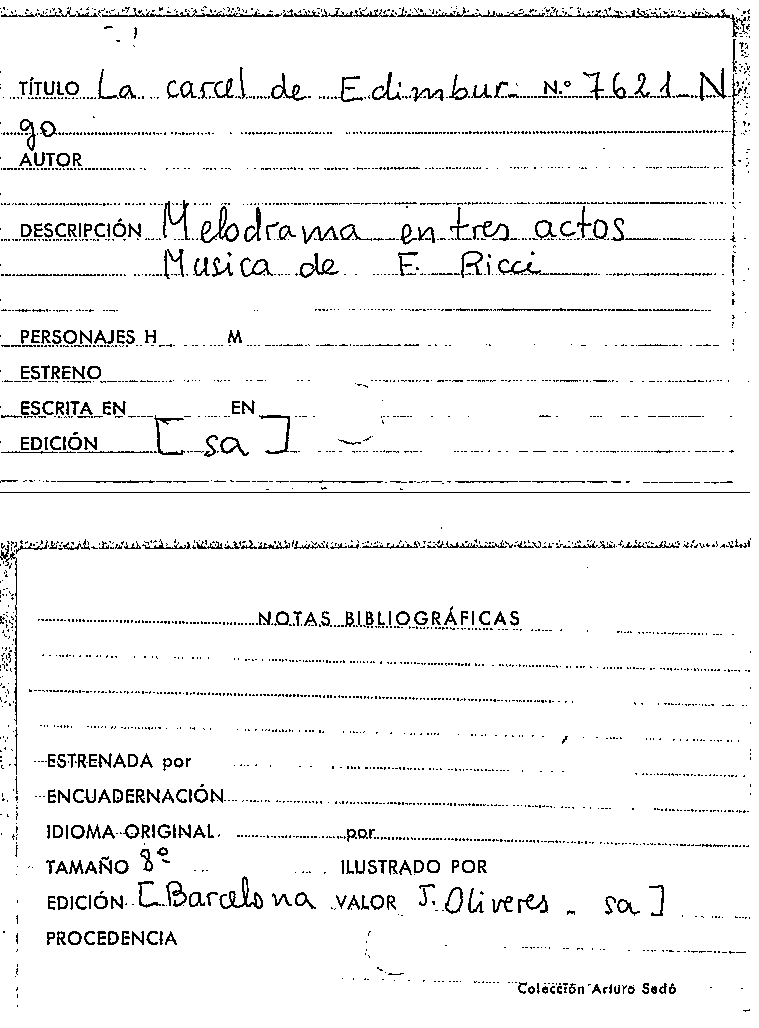 TÍTULO La carcel de Edimbur- N.º 7621 N
go
AUTOR
DESCRIPCIÓN Melodrama en tres actos
Musica de F. Ricci
PERSONAJES H M
ESTRENO
ESCRITA EN EN
EDICIÓN [sa]
NOTAS BIBLIOGRÁFICAS
ESTRENADA por
ENCUADERNACIÓN
IDIOMA ORIGINAL por
TAMAÑO 8º ILUSTRADO POR
EDICIÓN [Barcelona VALOR J. Oliveres - sa]
PROCEDENCIA
Colección Arturo Sedó